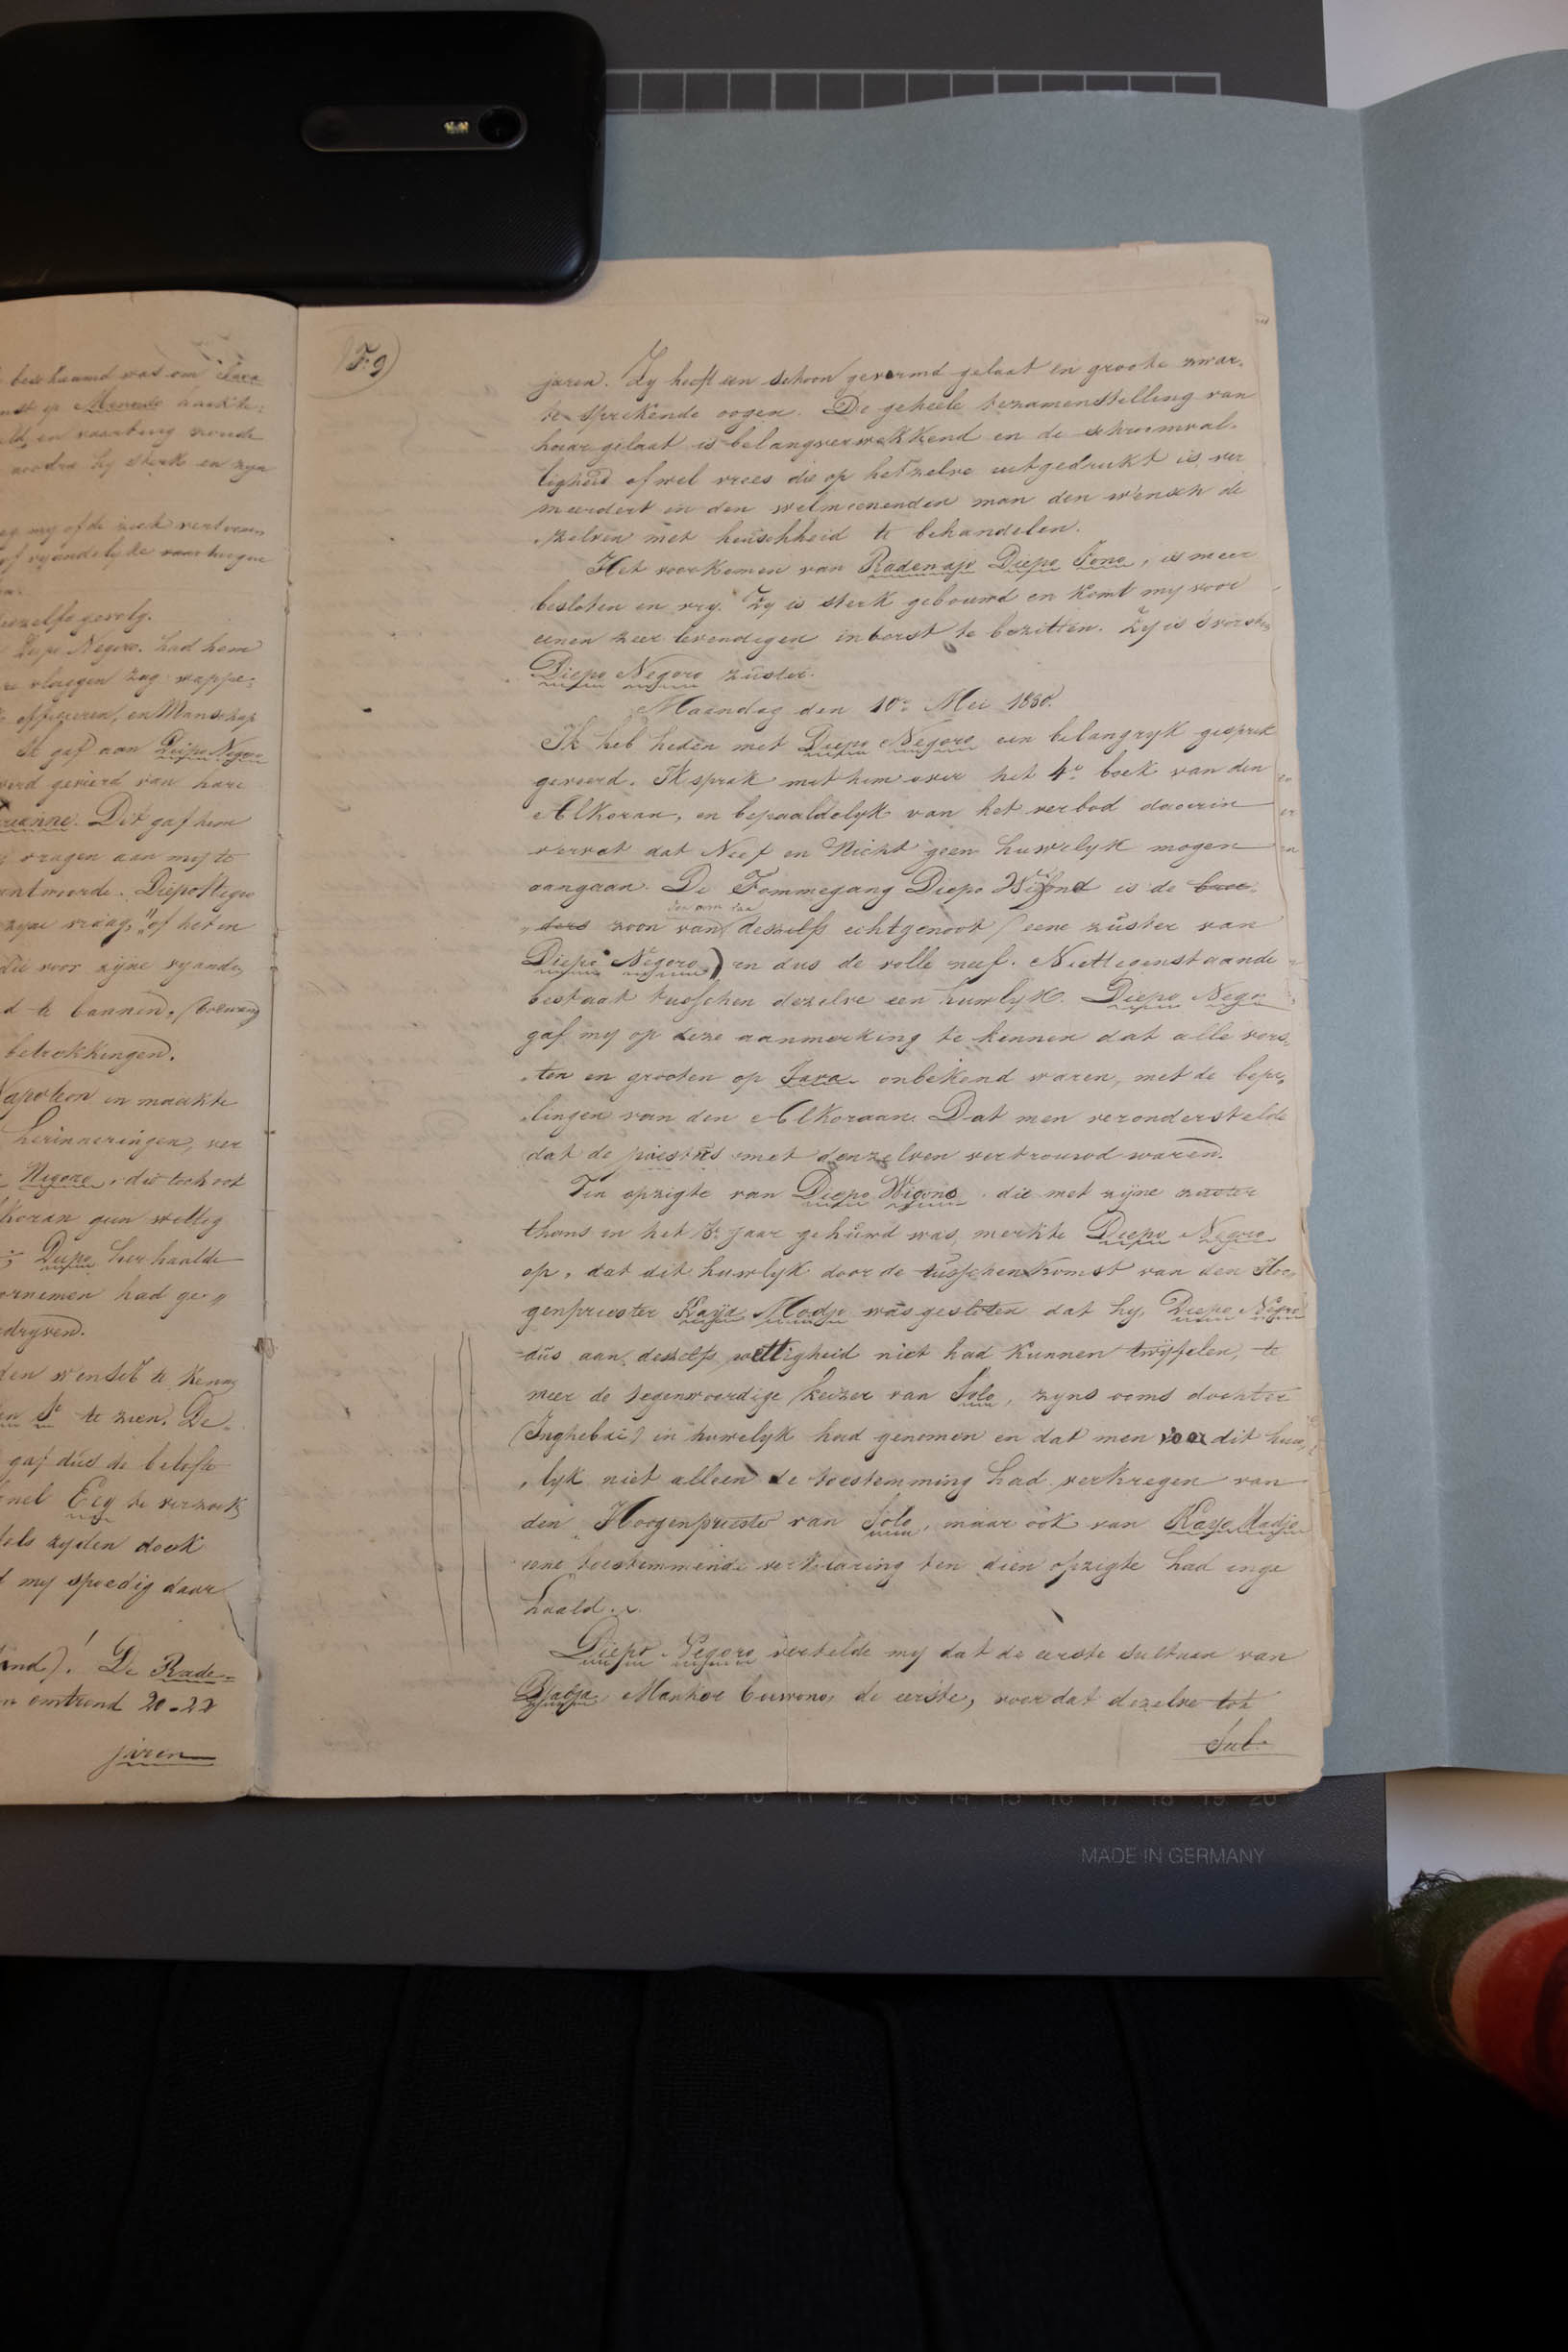 bes kaamd was om Java
op Menado
en waarburg zoude
hy sterk en zyn
my of de ziek
vyandelyke vaartuigen
dezelfs gevolg.
Diepo Negoro. had hem
vlaggen zag wappe,
officieren, en Manschap
Ik gaf aan Diepo Negoro
werd gevierd van hare
Dit gaf hem
vragen aan my te
antwoorde. Diepo Negoro
zyne vraag, "of het in
die voor zyne vyande,
d te bannen.
betrekkingen.
Napoleon en maakte
herinneringen, ver
Negoro, die toch ook
koran geen wettig
Diepo herhaalde
ornemen had ge,,
dryven.
den wensch te kenne
te zien. De
gaf dus de belofte
nel Eeg te verzoek
zyden doek
my spoedig daar
ind)! De Rade=
omtrend 20-22
jaren
(F. 9)
jaren. Zy heeft een schoon gevormd gelaat en groote zwar,
te sprekende oogen. De geheele tezamenstelling van
haar gelaat is belangverwekkend en de schroomval,
ligheid of wel vrees die op hetzelve uitgedrukt is, ver
meerdert in den welmeenenden man den wensch de
zelven met heuschheid te behandelen.
Het voorkomen van Radenajo Diepo Sono, is meer
besloten en vry. Zy is sterk gebouwd en komt my voor
eenen zeer levendigen inborst te bezitten. Zy is 's vorsten
Diepo Negoro zuster.
Maandag den 10e Mei 1830.
Ik heb heden met Diepo Negoro een belangryk gesprek
gevoerd. Ik sprak met hem over het 4e boek van den
Alkoran, en bepaaldelyk van het verbod daarin
vervat dat Neef en Nicht geen huwelyk mogen
aangaan. De Tommegang Diepo Wisono is de broe,
,ders zoon van deszelfs echtgenoot (eene zuster van
Diepo Negoro) en dus de volle neef. Niettegenstaande
bestaat tusschen dezelve een huwlyk. Diepo Negor
gaf my op deze aanmerking te kennen dat alle vors,
,ten en grooten op Java onbekend waren, met de bepa,
,lingen van den Alkoraan. Dat men veronderstelde
dat de priesters met denzelven vertrouwd waren.
Ten opzigte van Diepo Wisono, die met zyne zuster
thans in het 8e jaar gehuwd was, merkte Diepo Negoro
op, dat dit huwlyk door de tusschenkomst van den Hoo,
genpriester Kayai Modjo was gesloten dat hy, Diepo Negoro
dus aan deszelfs wettigheid niet had kunnen twyfelen, te
meer de tegenwoordige keizer van Solo, zyns ooms dochter
(Inghebai) in huwelyk had genomen en dat men voor dit huw,
,lyk niet alleen de toestemming had verkregen van
den Hoogenpriester van Solo, maar ook van Kayai Modjo
eene toestemmende verklaring ten dien opzigte had inge
haald.
Diepo Negoro vertelde my dat de eerste sultaan van
Djocja Mankoe boewono, de eerste, voor dat dezelve tot
Sul-
9 10 11 12 13 14 15 16 17 18 19 20
MADE IN GERMANY